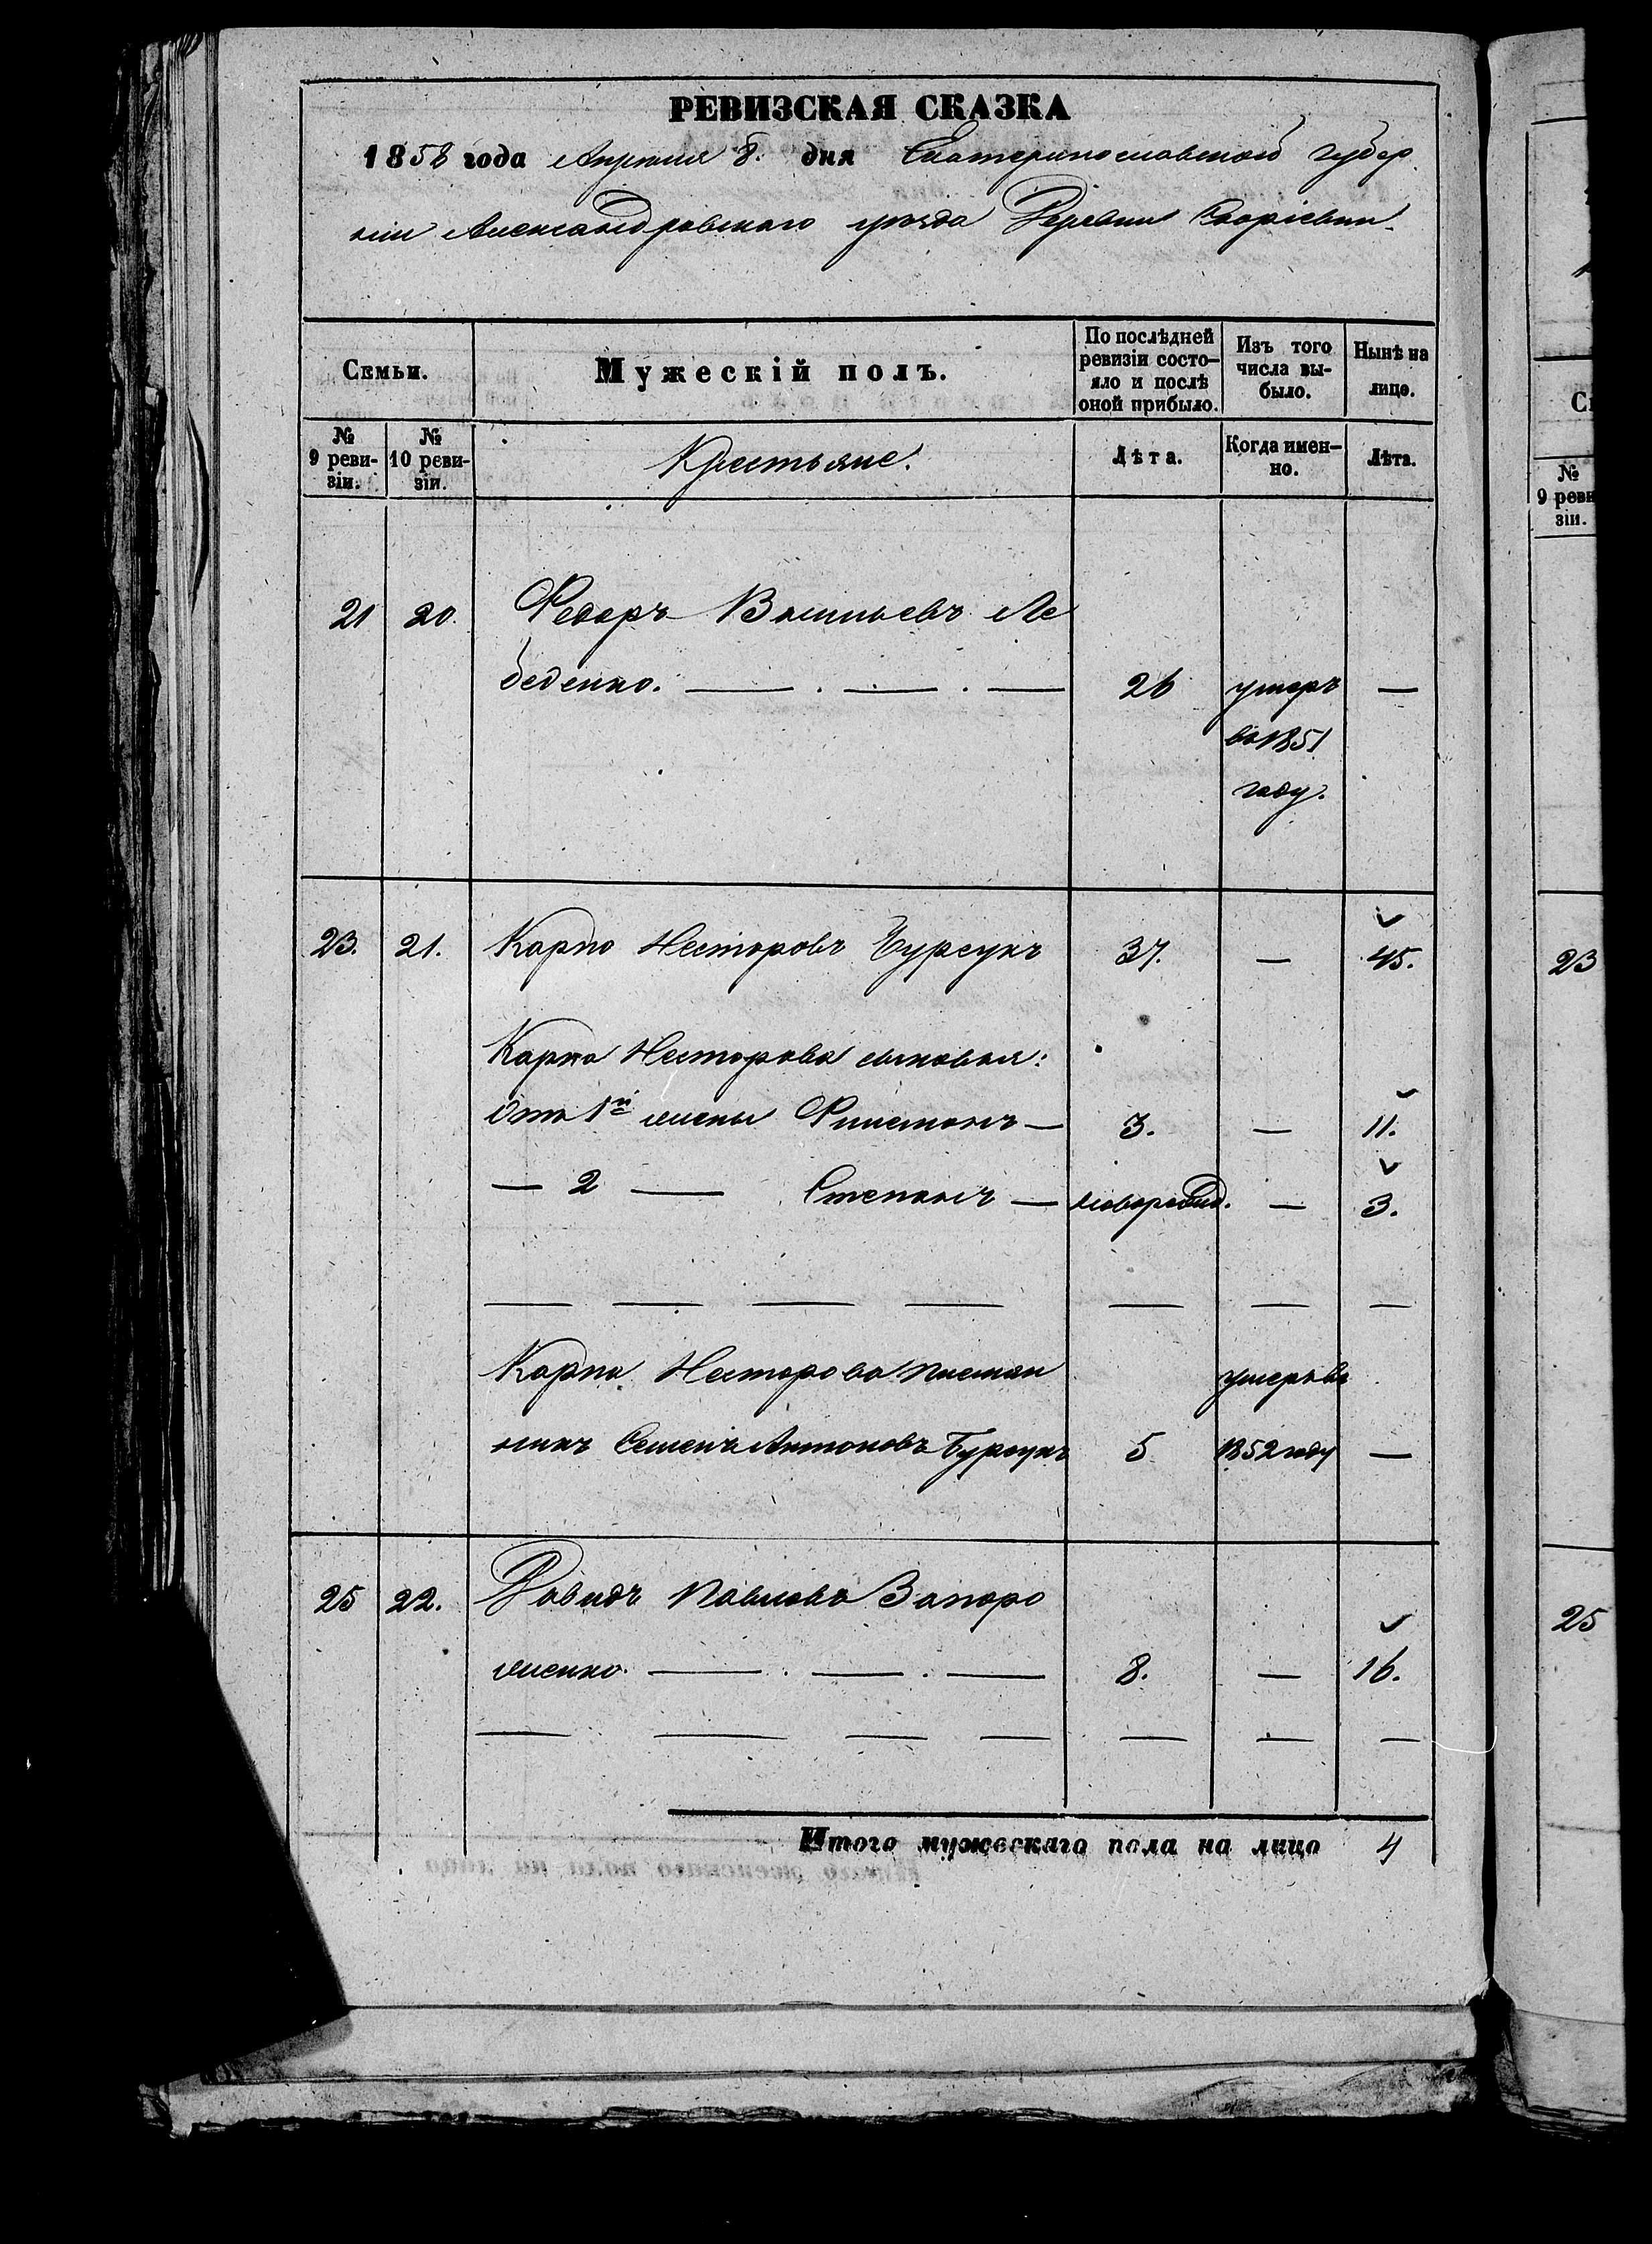 РЕВИЗСКАЯ СКАЗКА
1858 года Апреля 8. дня Екатеринославской губер
нiи Александровскаго уѣзда Деревни
Семьи.
Мужескiй полъ.
По послѣдней ревизiи состо-
яло и послѣ
оной прибыло.
Изъ того
числа вы-
было.
Нынѣ на
лицо.
№
9 реви-
зiи.
№
10 реви-
зiи.
Крестьяне.
Лѣта.
Когда имен-
но.
Лѣта.
21 20. Федоръ Васильевъ Ле
беденко. — . — . — 26 умеръ —
въ 1851
году.
23. 21. Карпо Несторовъ Бурсукъ 37. — 45.
Карпа Несторова сыновья:
Отъ 1й жены Филимонъ — 3. — 11.
— 2 — Степанъ — новорожд. — 3.
Карпа Несторова племян умеръ въ
никъ Семенъ Антоновъ Бурсукъ 5 1852 году —
25 22. Давидъ Павловъ Запоро
женко. — . — . — 8. — 16.
Итого мужескаго пола на лицо 4
Се
№
9 реви
зiи.
23
25